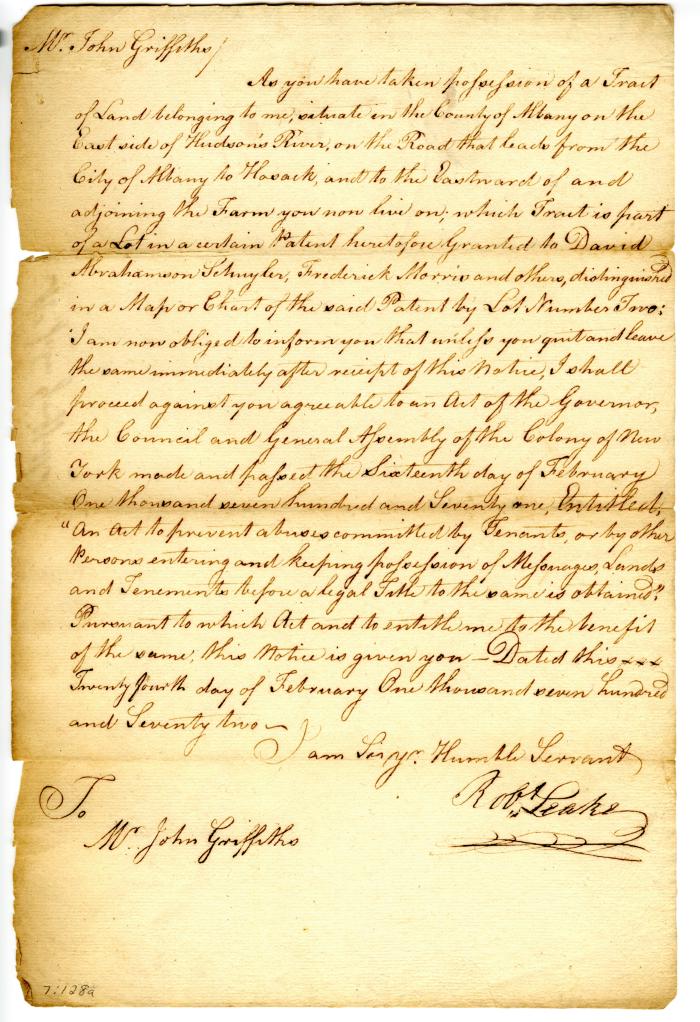 Mr. John Griffiths/
As you have taken possession of a Tract
of Land belonging to me, situate in the County of Albany on the
East side of Hudson's River, on the Road that leads from the
City of Albany to Hosack, and to the Eastward of and
adjoining the Farm you now live on; which Tract is part
of a Lot in a certain Patent heretofore Granted to David
Abrahamson Schuyler, Frederick Morris and others, distinguished
in a Map or Chart of the said Patent by Lot Number Two:
I am now obliged to inform you that unless you quit and leave
the same immediately after receipt of this Notice, I shall
proceed against you agreeable to an Act of the Governor,
the Council and General Assembly of the Colony of New
York made and passed the Sixteenth day of February
One thousand seven hundred and Seventy one, Entitled,
"An Act to prevent abuses committed by Tenants, or by other
Persons entering and keeping possession of Messuages, Lands
and Tenements before a legal Title to the same is obtained".
Pursuant to which Act and to entitle me to the benefit
of the same, this Notice is given you — Dated this xxx
Twenty fourth day of February One thousand seven hundred
and Seventy two —
I am Sir yr. Humble Servant
Robt. Leake
To
Mr. John Griffiths
7:128a